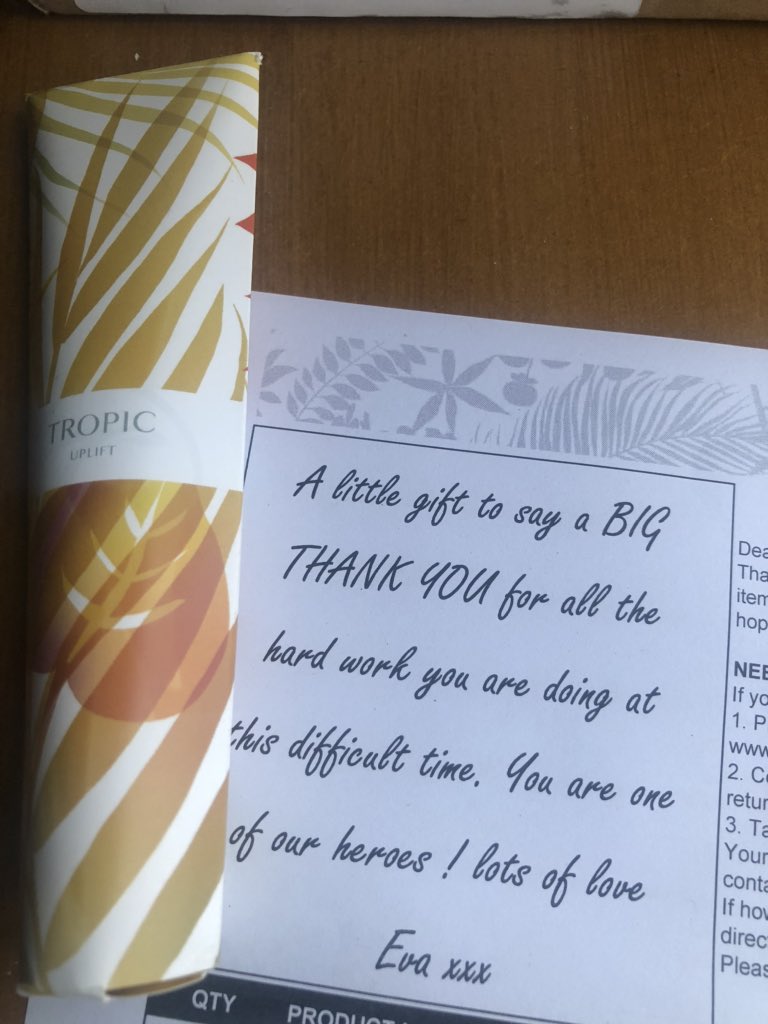 TROPIC
UPLIFT
A little gift to say a BIG
THANK YOU for all the
hard work you are doing at
this difficult time. You are one
of our heroes ! lots of love
Eva xxx
QTY PRODUCT
If yo
1. P
www
2. Co
retur
3. Ta
Your
conta
If how
direc
Pleas